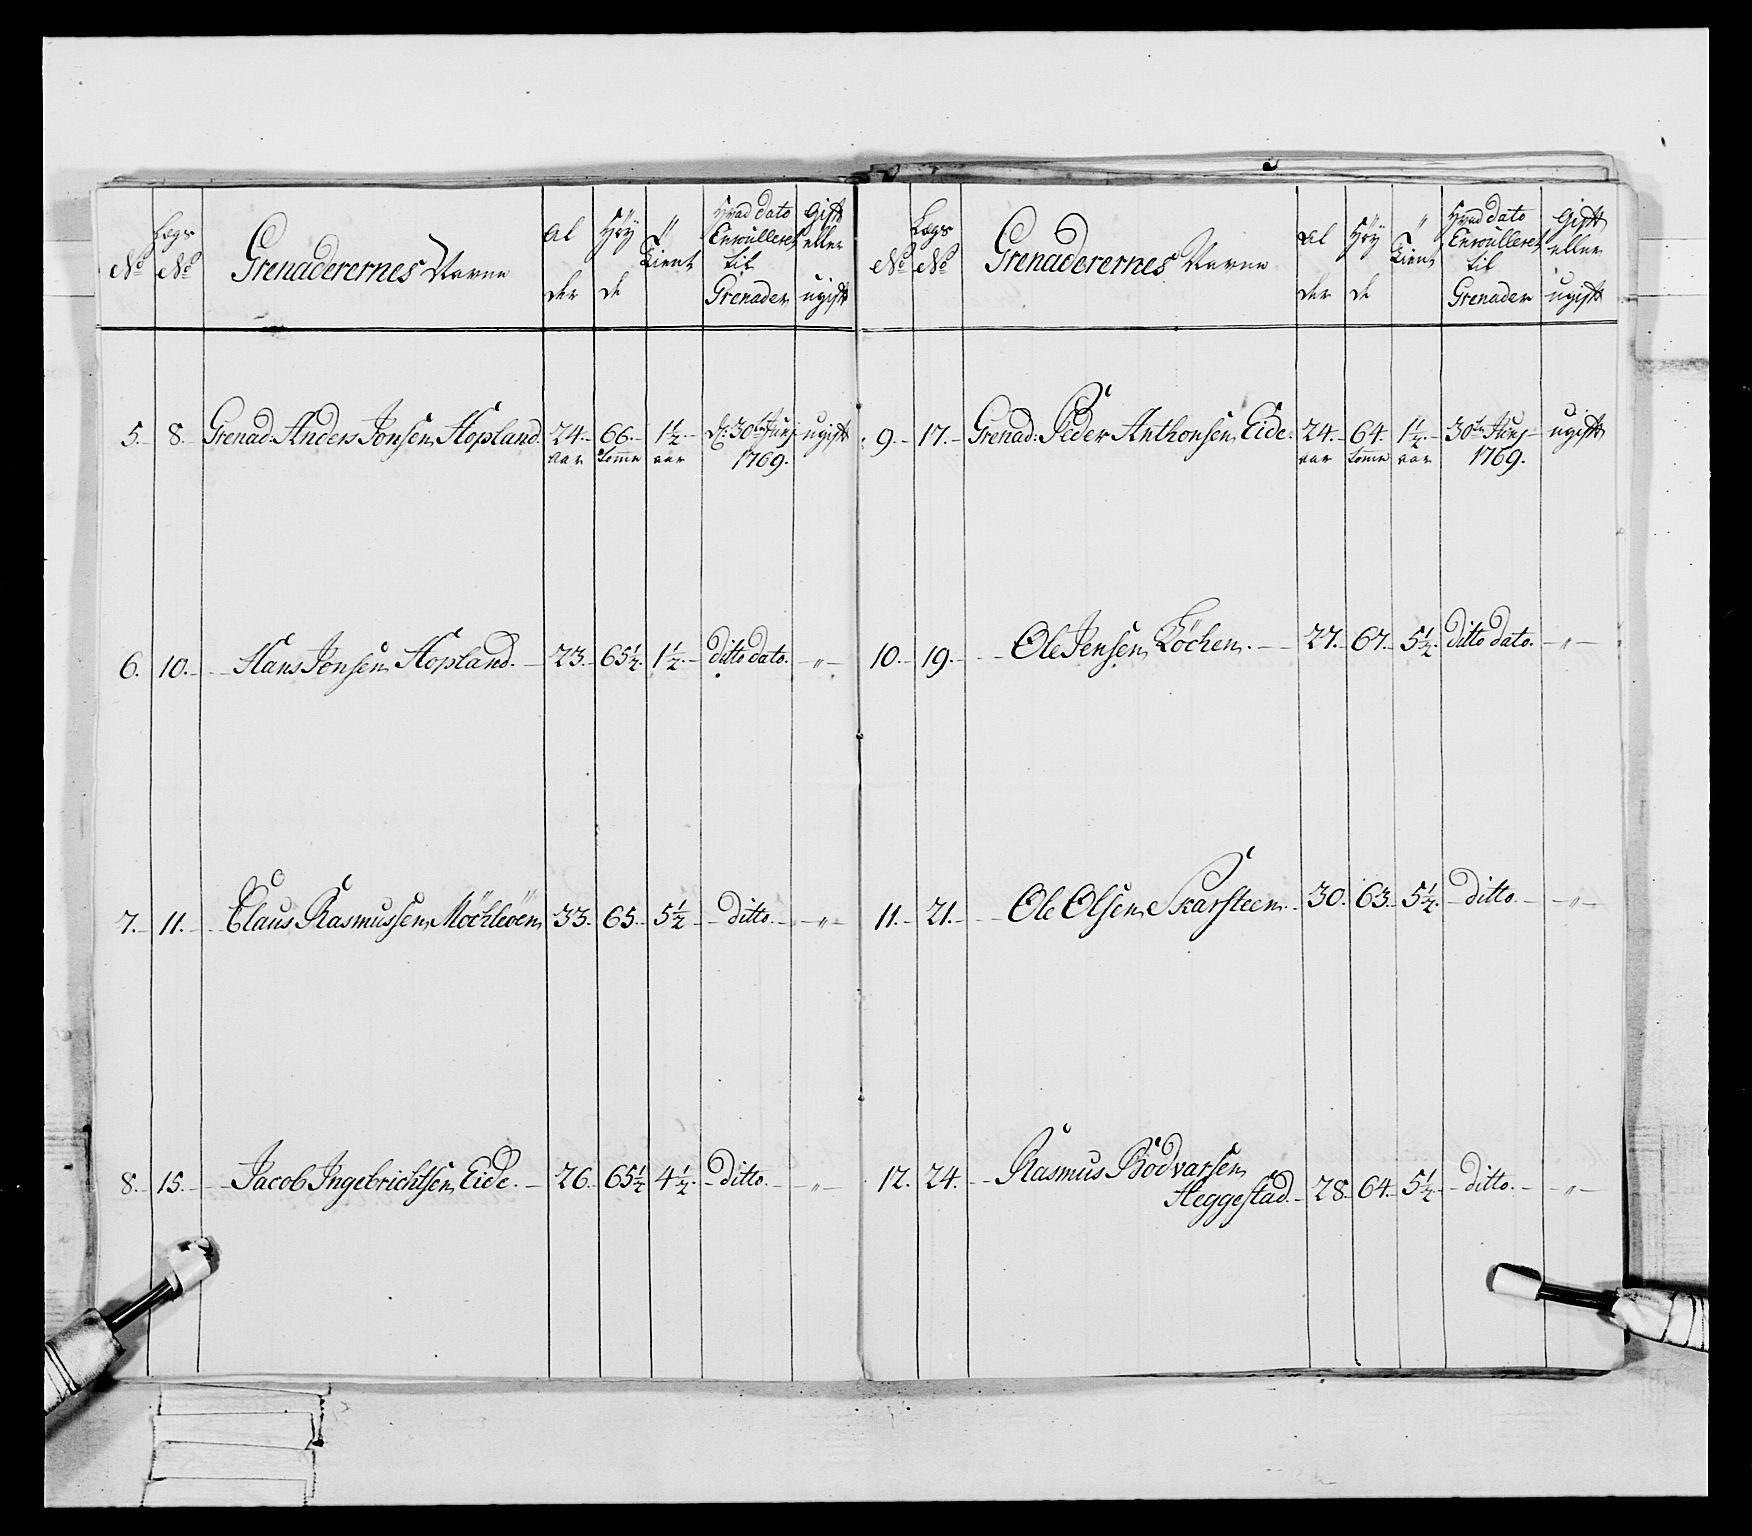 No Lægs No Grenaderernes Navne Al der Höy de Tient Hvad dato Enroulleret til Grenader Gift eller ugift
5. 8. Grenad: Anders Jonsen Hopland. 24. aar 66. tomme 1½. aar d: 30te Junj 1769. ugift
6. 10. Hans Jonsen Hopland. 23. 65½. 1½. ditto dato. "
7. 11. Claus Rasmussen 33. 65. 5½ ditto. "
8. 15. Jacob Ingebrichtsen Eide. 26. 65½ 4½. ditto. "
No Lægs No Grenaderernes Navne Al der Höy de Tient Hvad dato Enroulleret til Grenader Gift eller ugift
9. 17. Grenad: Peder Anthonsen Eide. 24. aar 64. tomme 1½. aar 30te Junj 1769. ugift
10. 19. Ole Jensen Löchen. 27. 67. 5½. ditto dato. "
11. 21. Ole Olsen Skarsteen. 30. 63. 5½. ditto. "
12. 24. Rasmus Bödvarsen
Heggestad. 28. 64. 5½. ditto. "